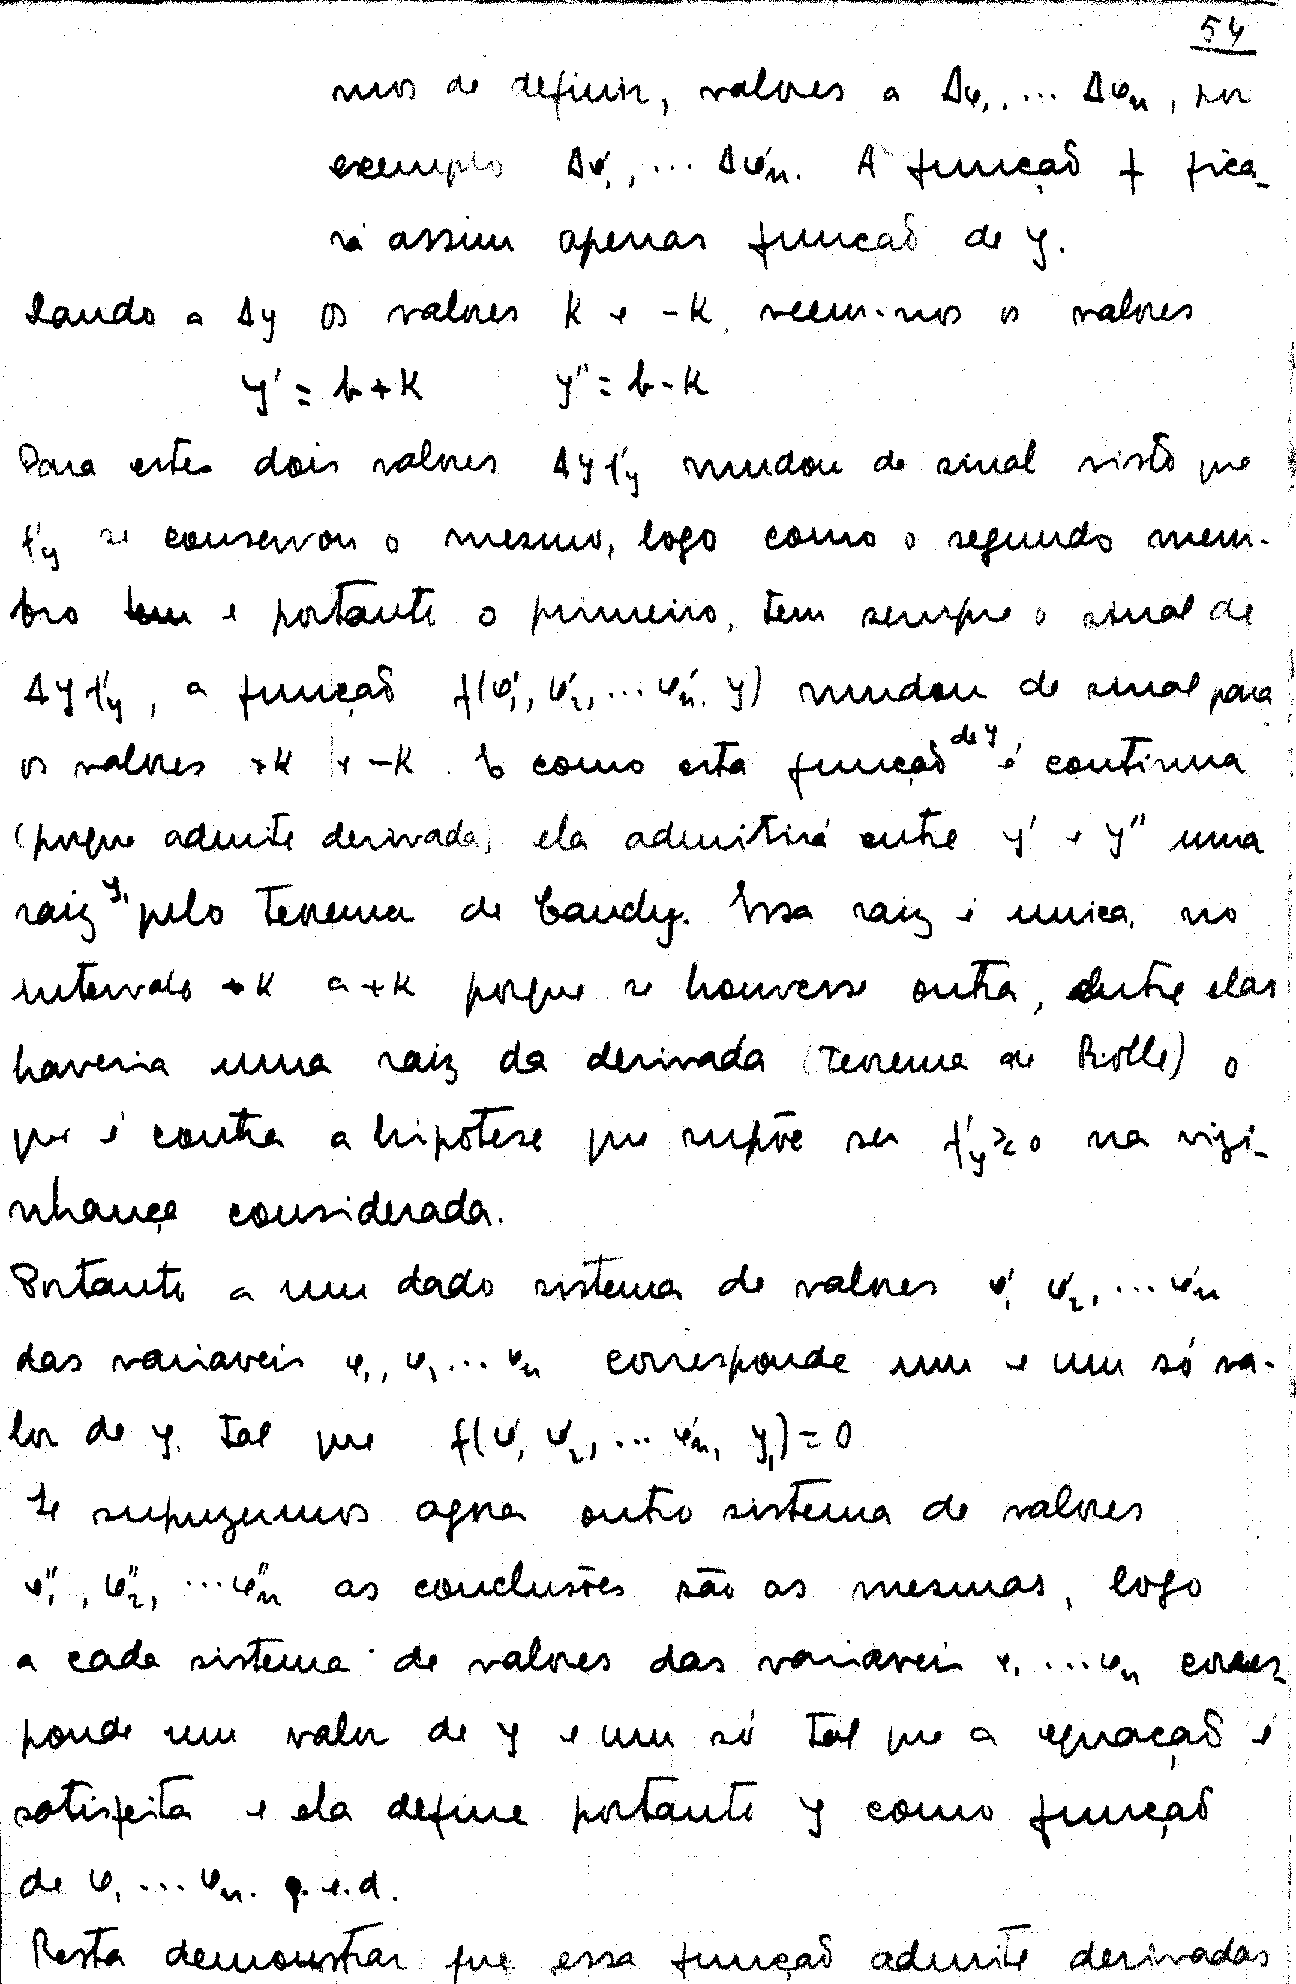 54
mos de definir, valores a Δφ₁, ... Δφₙ, por
exemplo Δφ'₁, ... Δφ'ₙ. A função f fica-
rá assim apenas função de y.
Dando a Δy os valores K e -K, veem-nos os valores
y' = b+K y'' = b-K
Para estes dois valores Δy f'y mudou de sinal visto que
f'y se conservou o mesmo, logo como o segundo mem-
bro e portanto o primeiro, tem sempre o sinal de
Δy f'y, a função f(φ'₁, φ'₂, ... φ'ₙ, y) mudou de sinal para
os valores +K e -K. E como esta função de y é continua
(porque admite derivada) ela admitirá entre y' e y'' uma
raiz y₁ pelo Teorema de Cauchy. Essa raiz é unica, no
intervalo +K a +K porque se houvesse outra, entre elas
haveria uma raiz da derivada (Teorema de Rolle) o
que é contra a hipotese que supõe ser f'y ≷ 0 na vizi-
nhança considerada.
Portanto a um dado sistema de valores φ'₁ φ'₂, ... φ'ₙ
das variaveis φ₁, φ₁, ... φₙ corresponde um e um só va-
lor de y, tal que f(φ'₁, φ'₂, ... φ'ₙ, y₁) = 0
Se supuzermos agora outro sistema de valores
φ''₁, φ''₂, ... φ''ₙ as conclusões são as mesmas, logo
a cada sistema de valores das variaveis φ₁ ... φₙ corres-
ponde um valor de y e um só tal que a equação é
satisfeita e ela define portanto y como função
de φ₁ ... φₙ. q.e.d.
Resta demonstrar que essa função admite derivadas